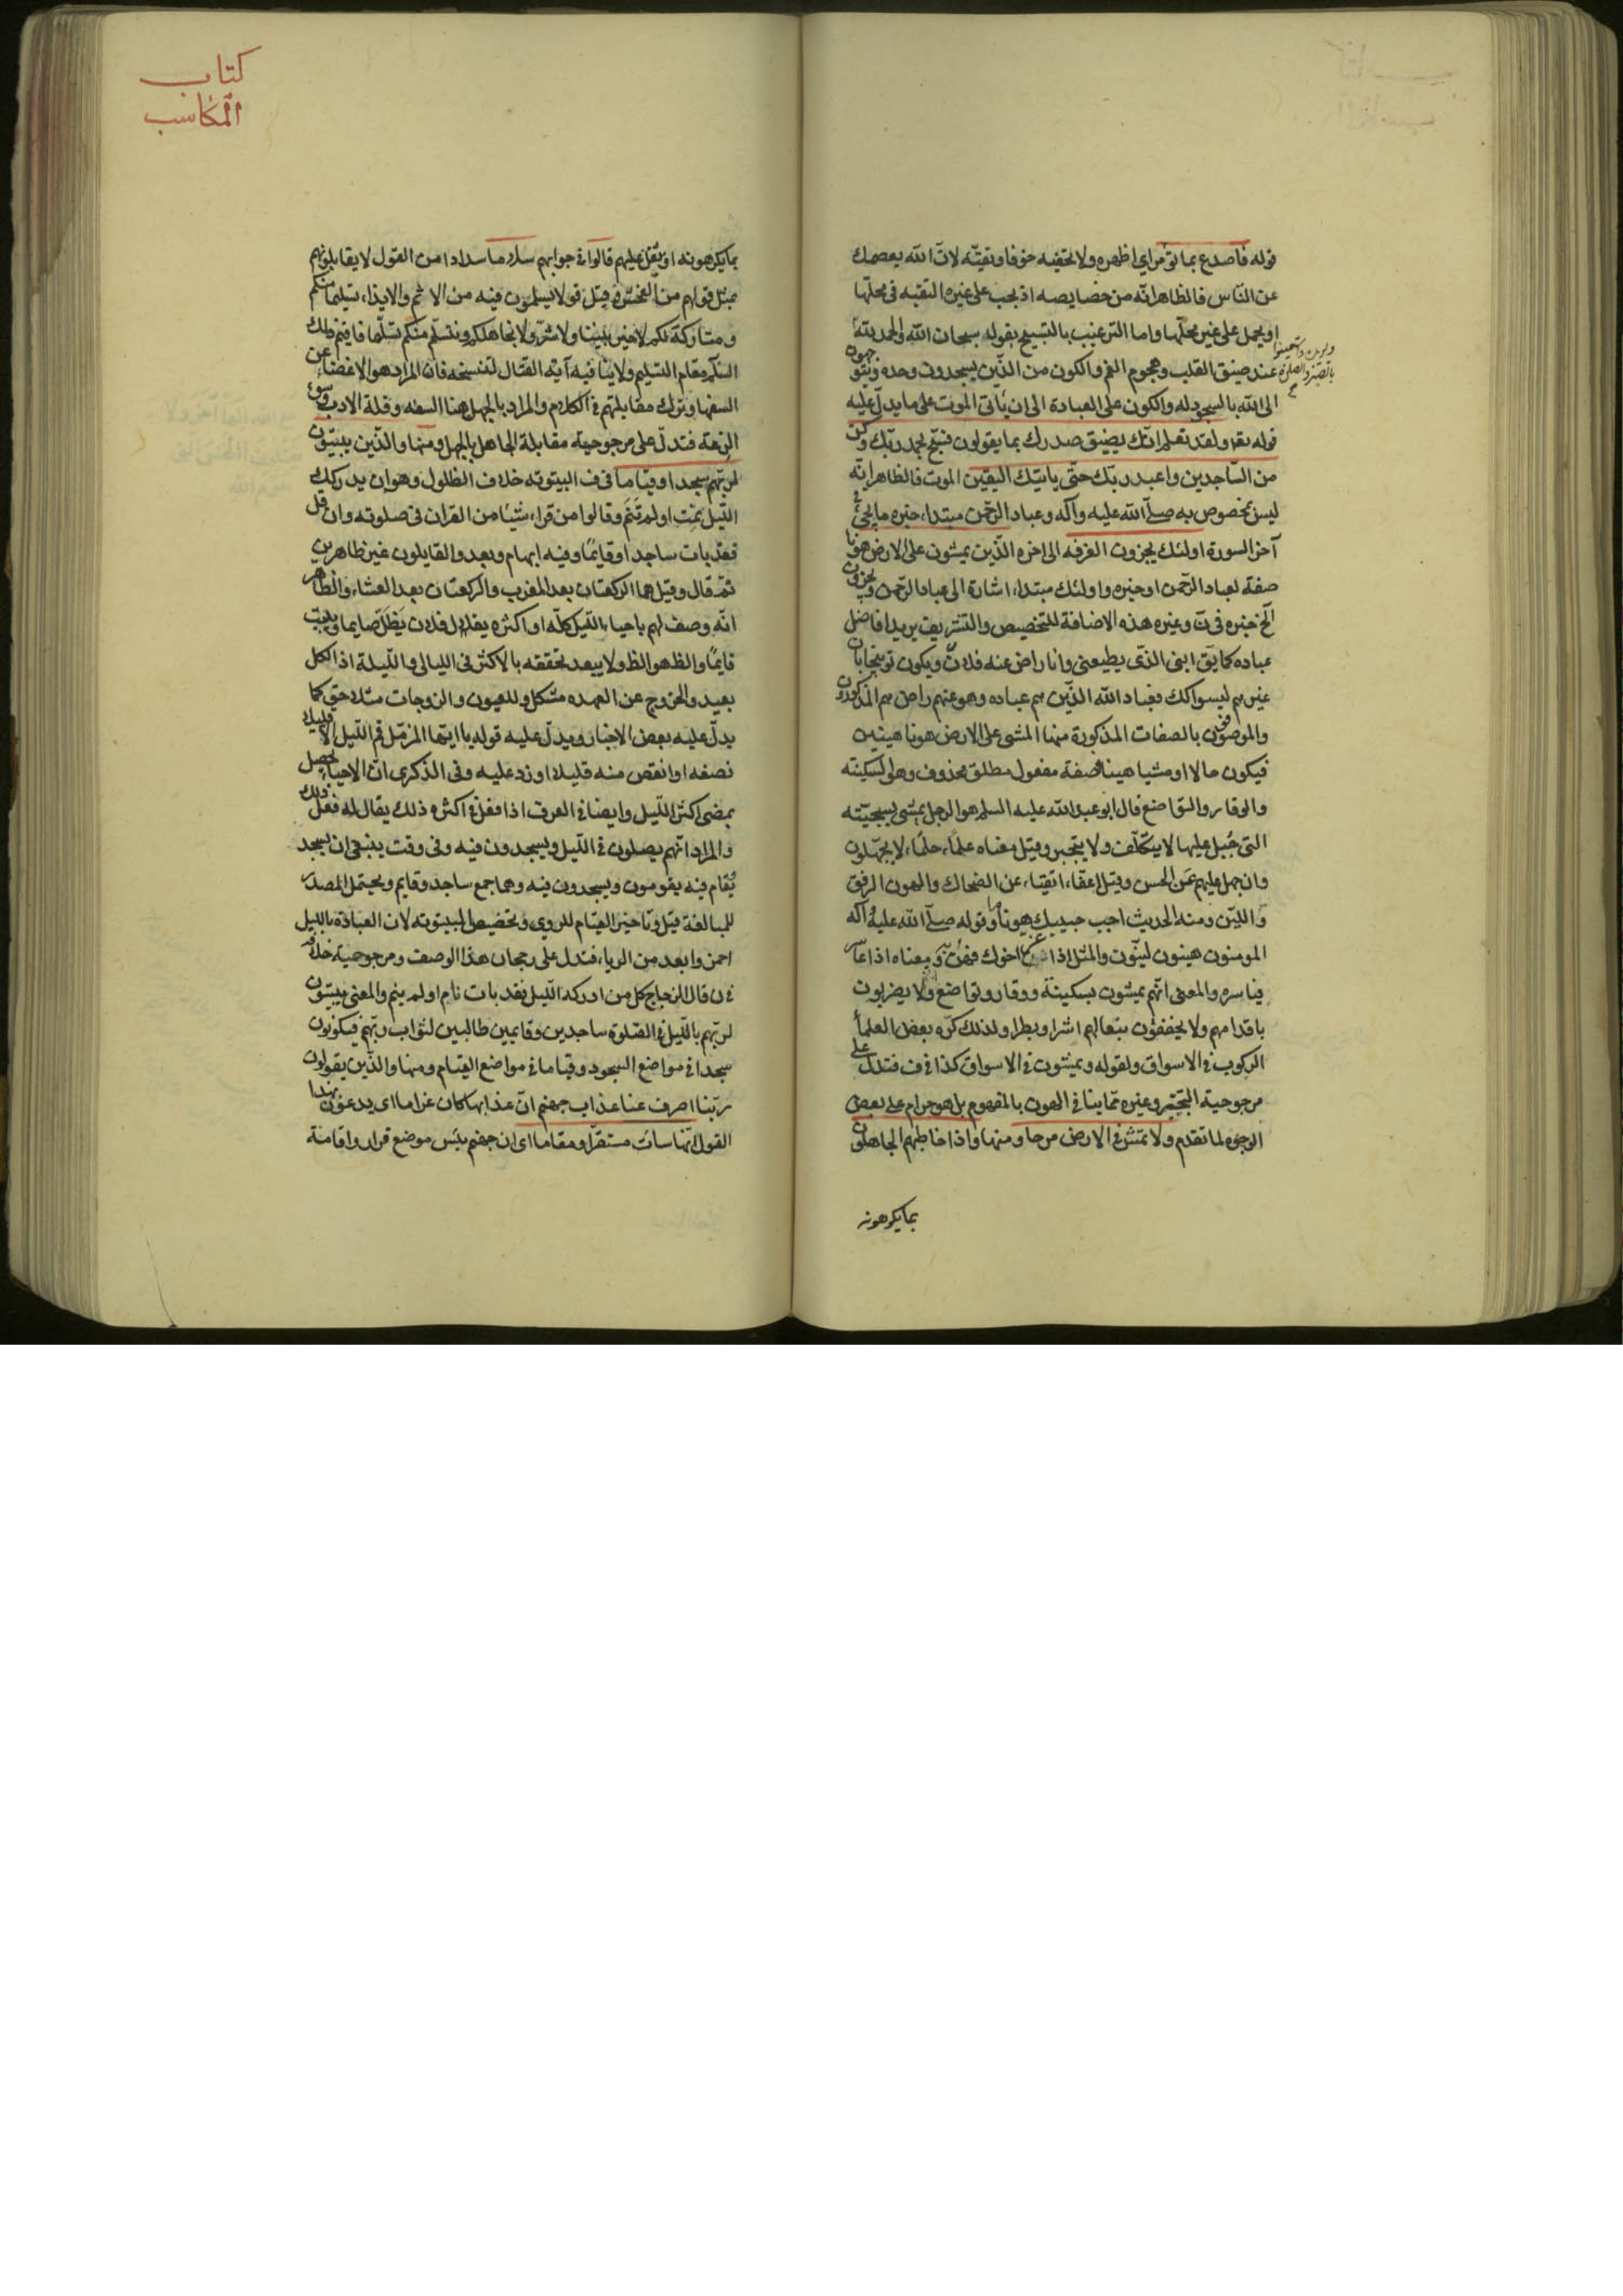 قوله فاصدع بما تؤمر اي اظهره ولا تخفيه خوفا وتقيّة لانّ الله يعصمك
عن النّاس فالظاهر انّه من خصايصه اذ يجب على غيره التقيه في محلّها
او يحمل على غير محلّها واما الترغيب بالتسبيح بقوله سبحان الله والحمد لله
عند ضيق القلب وهجوم الغم والكون من الذّين يسجدون وحده
الى الله بالسجود له والكون على العبادة الى ان يأتى الموت على ما يدلّ عليه
قوله تعر ولقد نعلم انّك يضيق صدرك بما يقولون فسبّح بحمد ربّك وكن
من السّاجدين واعبد ربّك حتّى يأتيك اليقين الموت فالظاهر انّه
ليس بمخصوص به صلّى الله عليه وآله وعباد الرّحمن مبتداء خبره ما يجئ في
آخر السورة اولئك يجزون الغرفه الى اخره الذّين يمشون على الارض هونا
صفة لعباد الرّحمن او خبره واولئك مبتداء اشارة الى عباد الرّحمن ويجزون
الخ خبره في ن وغيره هذه الاضافة للتخصيص والتشريف يريد افاضل
عباده كما يق ابنى الذّى يطيعنى وانا راض عنه فلان ويكون توبيخا بان
غيرهم ليسوا كك فعباد الله الذّين هم عباده وهو عنهم راض هم المذكورون
والموصوفون بالصفات المذكورة منها المشى على الارض هونا هينين
فيكون حالا او مشيا هينا فصفة مفعول مطلق محذوف وهى السكينه
والوقار والتواضع قال ابو عبد الله عليه السلم هو الرجل يمشى بسجيّته
التى جُبل عليها لا يتكلّف ولا يتجبر وقيل معناه علماء حلماء لا يجهلون
وان جهل عليهم عن الحسن وقيل اعفّاء اتقياء عن الضحاك والهون الرفق
واللين ومنه الحديث احبب حبيبك هونا ما وقوله صلّى الله عليه وآله
المومنون هينون لينون والمثل اذا عزّ اخوك فهن ومعناه اذا عاسر
فياسره والمعنى انّهم يمشون بسكينة ووقار وتواضع ولا يضربون
باقدامهم ولا يخفقون بنعالهم اشرا وبطرا ولذلك كره بعض العلماء
الركوب في الاسواق ولقوله ويمشون في الاسواق كذا في ف فتدل على
مرجوحية التبختر وغيره مما ينافى الهون بالمفهوم بل هو حرام على بعض
الوجوه لما تقدم ولا تمش في الارض مرحا ومنها واذا خاطبهم الجاهلون
بما يكرهونه
كتاب
المكاسب
بما يكرهونه او يثقل عليهم قالوا في جوابهم سلاما سدادا من القول لا يقابلونهم
بمثل قولهم من الفحش وقيل قولا يسلمون فيه من الاثم والايذاء تسليما منكم
ومتاركة لكم لا خير بيننا ولا شرّ ولا نجاهلكم ونتسلم منكم تسلّما فاقيم
السّلم مقام التسليم ولا ينافيه آية القتال لتنسخه فان المراد هو الاغضاء عن
السفهاء وترك مقابلتهم في الكلام والمراد بالجهل هنا السفه وقلة الادب وسوء
الرعة فتدلّ على مرجوحية مقابلة الجاهل بالجهل ومنها والذّين يبيتون
لربّهم سجدا وقياما في ف البيتوته خلاف الظلول وهو ان يدركك
اللّيل نمت او لم تنم وقالوا من قراء شيئا من القران في صلوته وان قل
فقد بات ساجدا وقايمًا وفيه ابهام وبعد والقايلون غير ظاهرين
ثمّ قال وقيل هما الركعتان بعد المغرب والركعتان بعد العشاء والظاهر
انّه وصف لهم باحياء اللّيل كلّه او اكثره يقال فلان يظلّ صايما ويبيت
قايمًا والظ هو الظ ولا يبعد تحققه بالاكثر في الليالي والليلة اذ الكل
بعيد والخروج عن العهده مشكل وللعيون والزوجات مثلا حق كما
يدلّ عليه بعض الاخبار ويدلّ عليه قوله يا ايّها المزمّل قم اللّيل الا قليلا
نصفه او انقص منه قليلا او زد عليه وفي الذكرى انّ الاحياء يحصل
بمضى اكثر اللّيل وايضا في العرف اذا فعل في اكثره ذلك يقال له فعل ذلك
والمراد انّهم يصلون في اللّيل ويسجدون فيه وفي وقت ينبغي ان يسجد
يُقام فيه يقومون ويسجدون فيه وهما جمع ساجد وقايم ويحتمل المصدر
للمبالغة قيل وتاخير القيام للروى وتخصيص البيتوته لان العبادة بالليل
احمز وابعد من الرياء فتدل على رجحان هذا الوصف ومرجوحية خلافه
في ن قال الزجاج كل من ادركه اللّيل فقد بات نام او لم ينم والمعنى يبيتون
لربّهم باللّيل في الصّلوة ساجدين وقايمين طالبين لثواب ربّهم فيكونون
سجدا في مواضع السجود وقياما في مواضع القيام ومنها والذّين يقولون
ربّنا اصرف عنا عذاب جهنم انّ عذابها كان غراما اى يدعون بهذا
القول انّها سائت مستقرّا ومقاما اى ان جهنم بئس موضع قرار واقامة